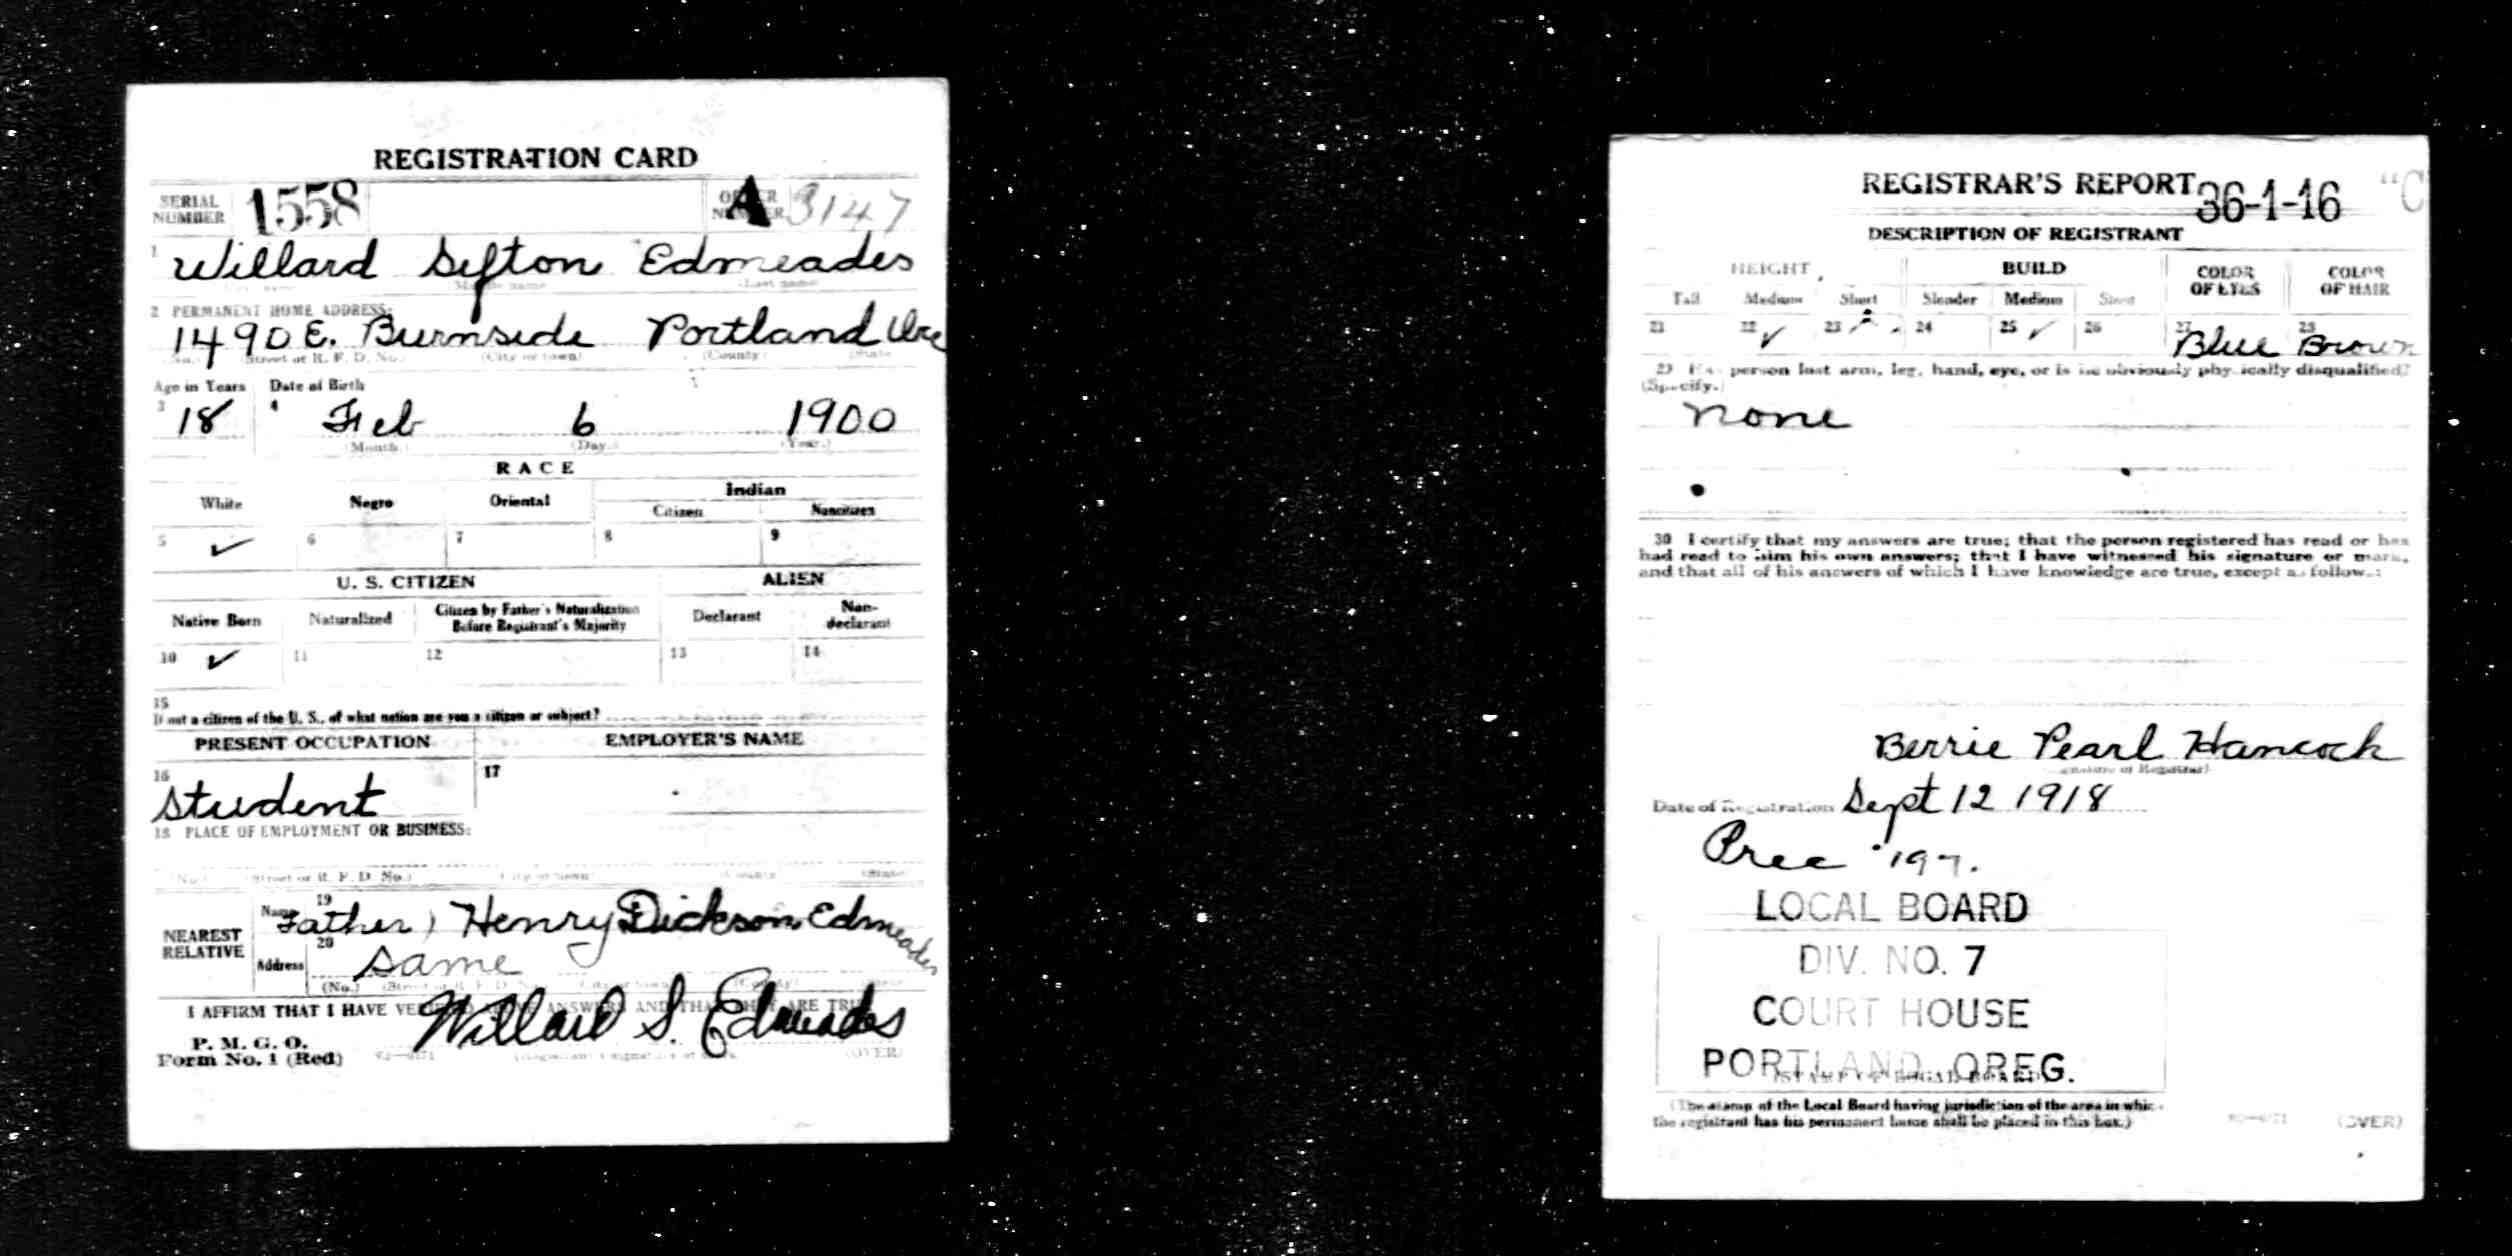 REGISTRATION CARD
SERIAL NUMBER 1558 ORDER NUMBER A 3147
1 Willard Sifton Edmeades
(Middle name) (Last name)
2 PERMANENT HOME ADDRESS:
1490 E. Burnside Portland Ore
(No.) (Street or R. F. D. No.) (City or town) (County) (State)
Age in Years Date of Birth
3 18 4 Feb 6 1900
(Month.) (Day.) (Year.)
RACE
White Negro Oriental Indian
Citizen Noncitizen
5 ✓ 6 7 8 9
U. S. CITIZEN ALIEN
Native Born Naturalized Citizen by Father's Naturalization Before Registrant's Majority Declarant Non-declarant
10 ✓ 11 12 13 14
15
If not a citizen of the U. S., of what nation are you a citizen or subject?
PRESENT OCCUPATION EMPLOYER'S NAME
16 Student 17
18 PLACE OF EMPLOYMENT OR BUSINESS:
(No.) (Street or R. F. D. No.) (City or town) (County) (State)
NEAREST RELATIVE Name 19 Father) Henry Dickson Edmeades
Address 20 Same
(No.) (Street or R. F. D. No.) (City or town) (County) (State)
I AFFIRM THAT I HAVE VERIFIED ABOVE ANSWERS AND THAT THEY ARE TRUE
P. M. G. O.
Form No. 1 (Red) Willard S. Edmeades
(Registrant's signature or mark) (OVER)
REGISTRAR'S REPORT 36-1-16 "C
DESCRIPTION OF REGISTRANT
HEIGHT BUILD COLOR OF EYES COLOR OF HAIR
Tall Medium Short Slender Medium Stout
21 22 ✓ 23 24 25 ✓ 26 27 Blue 28 Brown
29 Has person lost arm, leg, hand, eye, or is he obviously physically disqualified?
(Specify.)
none
30 I certify that my answers are true; that the person registered has read or has
had read to him his own answers; that I have witnessed his signature or mark,
and that all of his answers of which I have knowledge are true, except as follows:
Berrie Pearl Hancock
(Signature of Registrar)
Date of Registration Sept 12 1918
Prec 197.
LOCAL BOARD
DIV. NO. 7
COURT HOUSE
PORTLAND, OREG.
(STAMP OF LOCAL BOARD)
(The stamp of the Local Board having jurisdiction of the area in which
the registrant has his permanent home shall be placed in this box.)
(OVER)